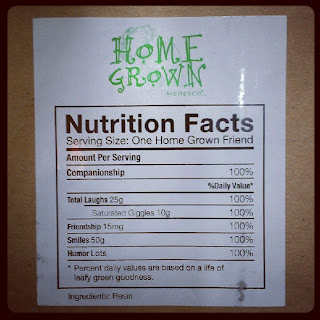 HOME
GROWN
Nutrition Facts
Serving Size: One Home Grown Friend
Amount Per Serving
Companionship 100%
%Daily Value*
Total Laughs 25g 100%
Saturated Giggles 10g 100%
Friendship 15mg 100%
Smiles 50g 100%
Humor Lots 100%
* Percent daily values are based on a life of
leafy green goodness.
Ingredients: Resin